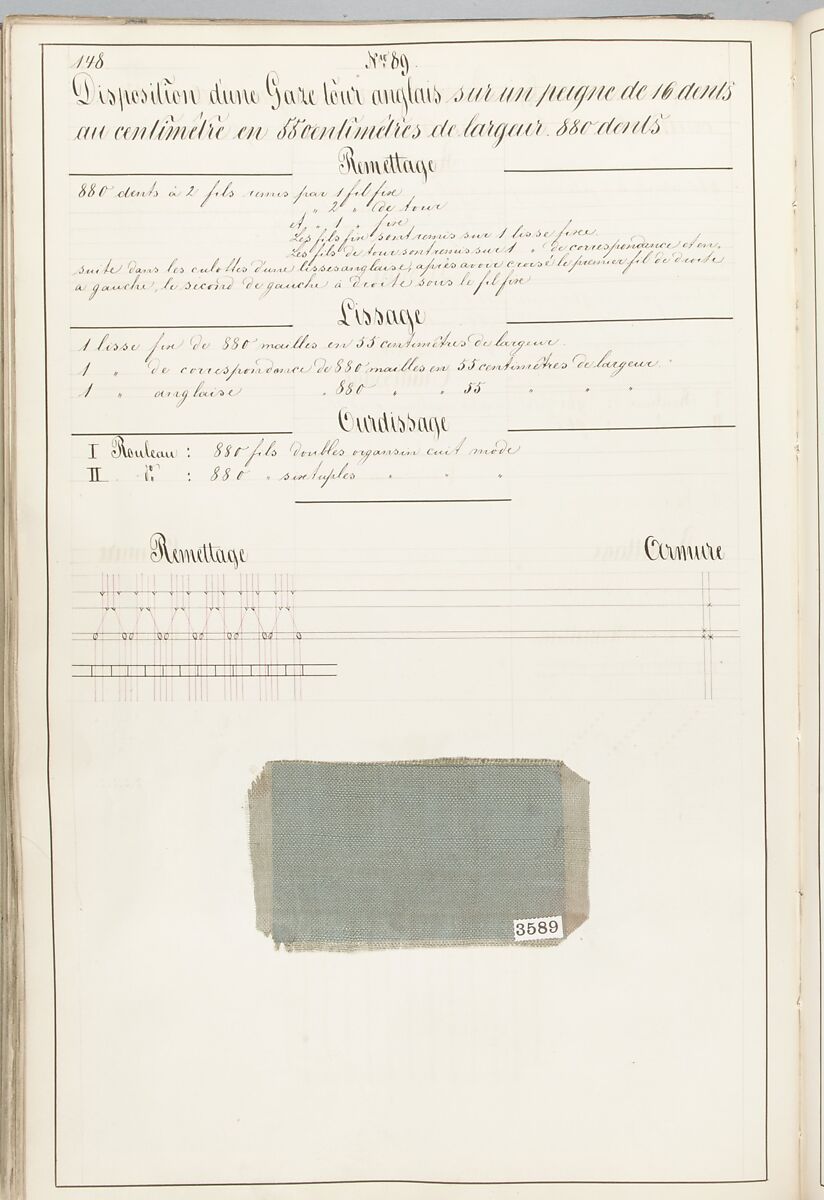 148
Nro 89.
Disposition d'une Gaze tour anglais sur un peigne de 16 dents
au centimètre en 55 centimètres de largeur. 880 dents
Remettage
880 dents à 2 fils remis par 1 fil fixe
" 2 " de tour
et " 1 " fixe
Les fils fix sont remis sur 1 lisse fixe.
Les fils de tour sont remis sur 1 " de correspondance et en,
suite dans les culottes d'une lisse anglaise, après avoir croisé le premier fil de droite
à gauche, le second de gauche à droite sous le fil fix
Lissage
1 lisse fix de 880 mailles en 55 centimètres de largeur.
1 " de correspondance de 880 mailles en 55 centimètres de largeur.
1 " anglaise " 880 " " 55 " " "
Ourdissage
I Rouleau : 880 fils doubles organsin cuit mode
II do : 880 " sixtuples " " "
Remettage
Armure
3589